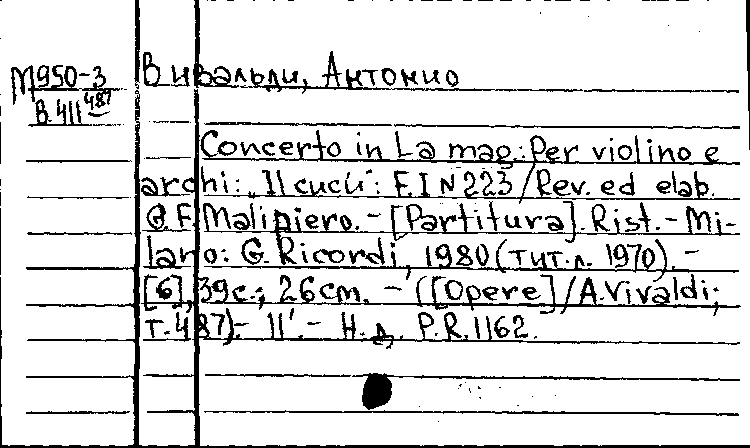 М950-3 Вивальди, Антонио
В.411 487
Concerto in La mag.: Per violino e
archi: „Il cucù": F.I N 223/Rev. ed elab.
G.F. Malipiero. - [Partitura]. Rist. - Mi-
lano: G. Ricordi, 1980 (тит.л. 1970). -
[6], 39c.; 26cm. - ([Opere]/A.Vivaldi;
т.487). - 11'. - Н.д. P.R.1162.